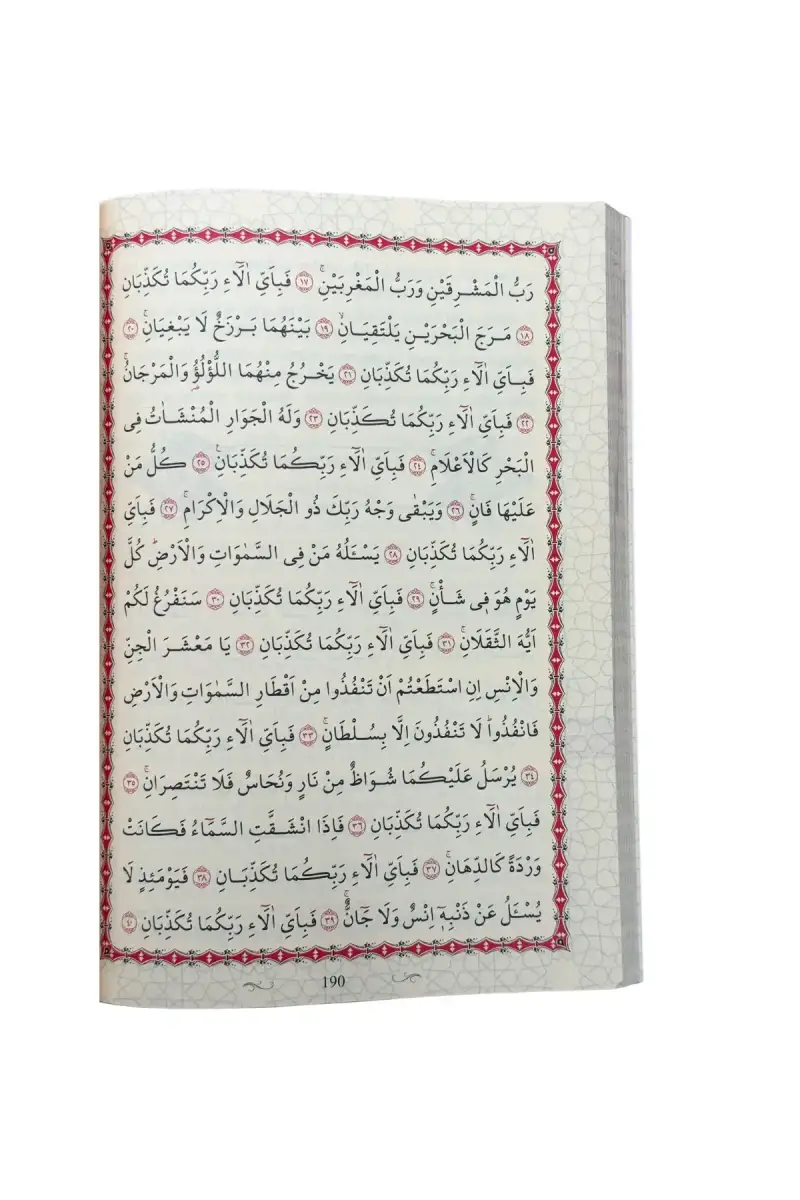 رَبُّ الْمَشْرِقَيْنِ وَرَبُّ الْمَغْرِبَيْنِۚ ﴿١٧﴾ فَبِاَيِّ اٰلَٓاءِ رَبِّكُمَا تُكَذِّبَانِ
﴿١٨﴾ مَرَجَ الْبَحْرَيْنِ يَلْتَقِيَانِۙ ﴿١٩﴾ بَيْنَهُمَا بَرْزَخٌ لَا يَبْغِيَانِۚ ﴿٢٠﴾
فَبِاَيِّ اٰلَٓاءِ رَبِّكُمَا تُكَذِّبَانِ ﴿٢١﴾ يَخْرُجُ مِنْهُمَا اللُّؤْلُؤُ۬ وَالْمَرْجَانُۚ
﴿٢٢﴾ فَبِاَيِّ اٰلَٓاءِ رَبِّكُمَا تُكَذِّبَانِ ﴿٢٣﴾ وَلَهُ الْجَوَارِ الْمُنْشَاٰتُ فِي
الْبَحْرِ كَالْاَعْلَامِۚ ﴿٢٤﴾ فَبِاَيِّ اٰلَٓاءِ رَبِّكُمَا تُكَذِّبَانِ۟ ﴿٢٥﴾ كُلُّ مَنْ
عَلَيْهَا فَانٍۚ ﴿٢٦﴾ وَيَبْقٰى وَجْهُ رَبِّكَ ذُو الْجَلَالِ وَالْاِكْرَامِۚ ﴿٢٧﴾ فَبِاَيِّ
اٰلَٓاءِ رَبِّكُمَا تُكَذِّبَانِ ﴿٢٨﴾ يَسْـَٔلُهُ مَنْ فِي السَّمٰوَاتِ وَالْاَرْضِۜ كُلَّ
يَوْمٍ هُوَ فِي شَأْنٍۚ ﴿٢٩﴾ فَبِاَيِّ اٰلَٓاءِ رَبِّكُمَا تُكَذِّبَانِ ﴿٣٠﴾ سَنَفْرُغُ لَكُمْ
اَيُّهَ الثَّقَلَانِۚ ﴿٣١﴾ فَبِاَيِّ اٰلَٓاءِ رَبِّكُمَا تُكَذِّبَانِ ﴿٣٢﴾ يَا مَعْشَرَ الْجِنِّ
وَالْاِنْسِ اِنِ اسْتَطَعْتُمْ اَنْ تَنْفُذُوا مِنْ اَقْطَارِ السَّمٰوَاتِ وَالْاَرْضِ
فَانْفُذُواۜ لَا تَنْفُذُونَ اِلَّا بِسُلْطَانٍۚ ﴿٣٣﴾ فَبِاَيِّ اٰلَٓاءِ رَبِّكُمَا تُكَذِّبَانِ
﴿٣٤﴾ يُرْسَلُ عَلَيْكُمَا شُوَاظٌ مِنْ نَارٍ وَنُحَاسٌ فَلَا تَنْتَصِرَانِۚ ﴿٣٥﴾
فَبِاَيِّ اٰلَٓاءِ رَبِّكُمَا تُكَذِّبَانِ ﴿٣٦﴾ فَاِذَا انْشَقَّتِ السَّمَٓاءُ فَكَانَتْ
وَرْدَةً كَالدِّهَانِۚ ﴿٣٧﴾ فَبِاَيِّ اٰلَٓاءِ رَبِّكُمَا تُكَذِّبَانِ ﴿٣٨﴾ فَيَوْمَئِذٍ لَا
يُسْـَٔلُ عَنْ ذَنْبِه۪ٓ اِنْسٌ وَلَا جَٓانٌّۚ ﴿٣٩﴾ فَبِاَيِّ اٰلَٓاءِ رَبِّكُمَا تُكَذِّبَانِ ﴿٤٠﴾
190